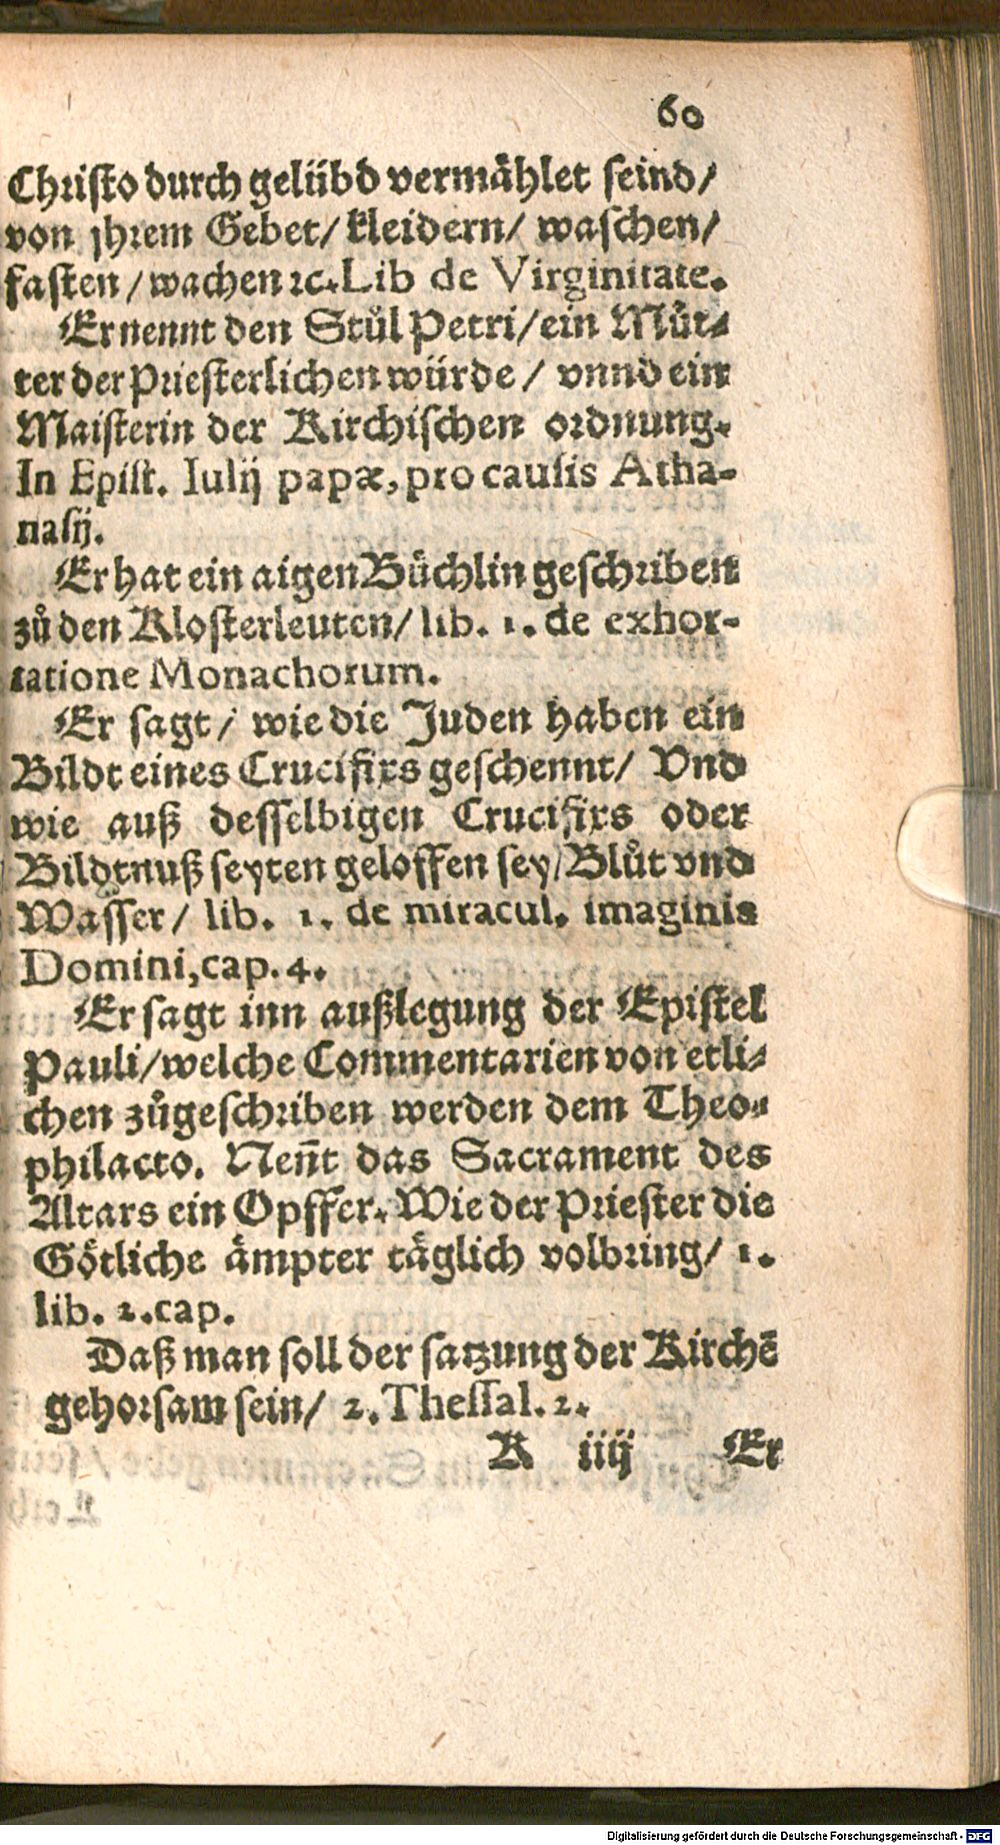 60
Christo durch gelübd vermählet seind/
von jhrem Gebet/ kleidern/ waschen/
fasten/ wachen ꝛc. Lib de Virginitate.
Er nennt den Stůl Petri/ ein Můt⸗
ter der Priesterlichen würde/ vnnd ein
Maisterin der Kirchischen ordnung.
In Epist. Iulij papæ, pro causis Atha-
nasij.
Er hat ein aigen Büchlin geschriben
zů den Klosterleuten/ lib. 1. de exhor-
tatione Monachorum.
Er sagt/ wie die Juden haben ein
Bildt eines Crucifixs geschennt/ Vnd
wie auß desselbigen Crucifixs oder
Bildtnuß seyten geloffen sey/ Blůt vnd
Wasser/ lib. 1. de miracul. imaginis
Domini, cap. 4.
Er sagt inn außlegung der Epistel
Pauli/ welche Commentarien von etli⸗
chen zůgeschriben werden dem Theo⸗
philacto. Neñt das Sacrament des
Altars ein Opffer. Wie der Priester die
Götliche ämpter täglich volbring/ 1.
lib. 2. cap.
Daß man soll der satzung der Kirchē
gehorsam sein/ 2. Thessal. 2.
K iiij Er
Digitalisierung gefördert durch die Deutsche Forschungsgemeinschaft - DFG